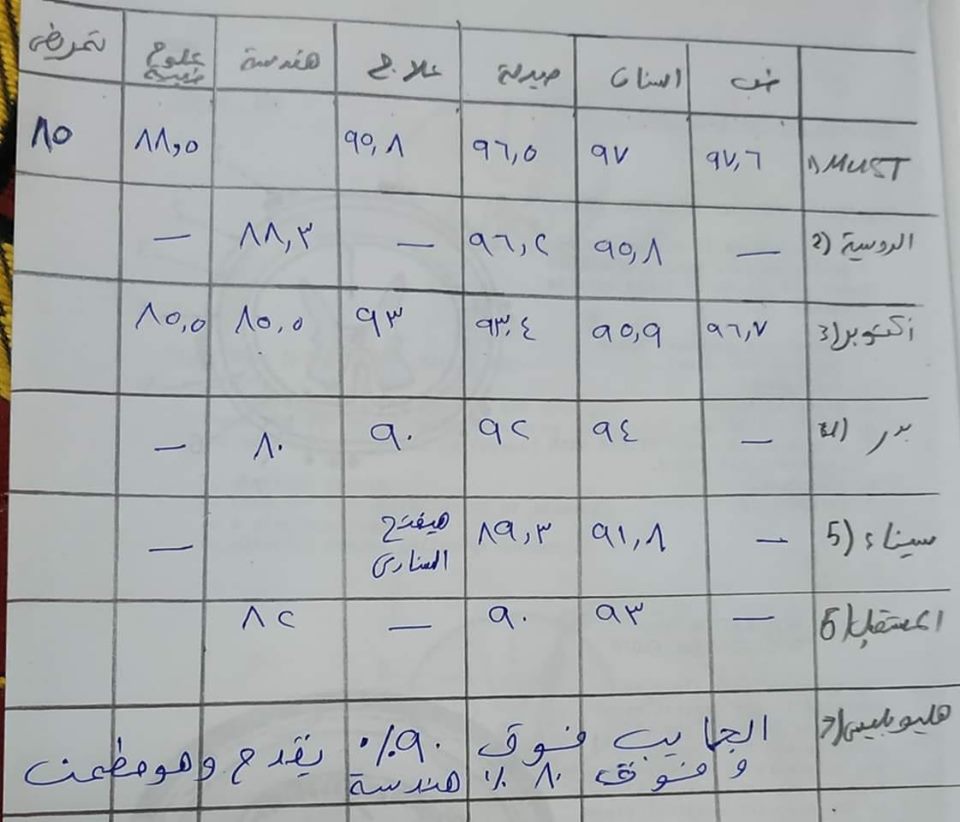 طب أسنان صيدلة علاج هندسة علوم طبية تمريض
1) MUST ٩٧,٦ ٩٧ ٩٦,٥ ٩٥,٨ ٨٨,٥ ٨٥
2) الروسية — ٩٥,٨ ٩٦,٢ — ٨٨,٣ —
3) أكتوبر ٩٦,٧ ٩٥,٩ ٩٣,٤ ٩٣ ٨٥,٥ ٨٥,٥
4) بدر — ٩٤ ٩٢ ٩٠ ٨٠ —
5) سيناء — ٩١,٨ ٨٩,٣ هيفتح السنادى —
6) المستقبل — ٩٣ ٩٠ — ٨٢
7) هليوبليس الجايب فوق ٩٠٪ يقدم وهو مطمن
و فوق ٨٠٪ هندسة